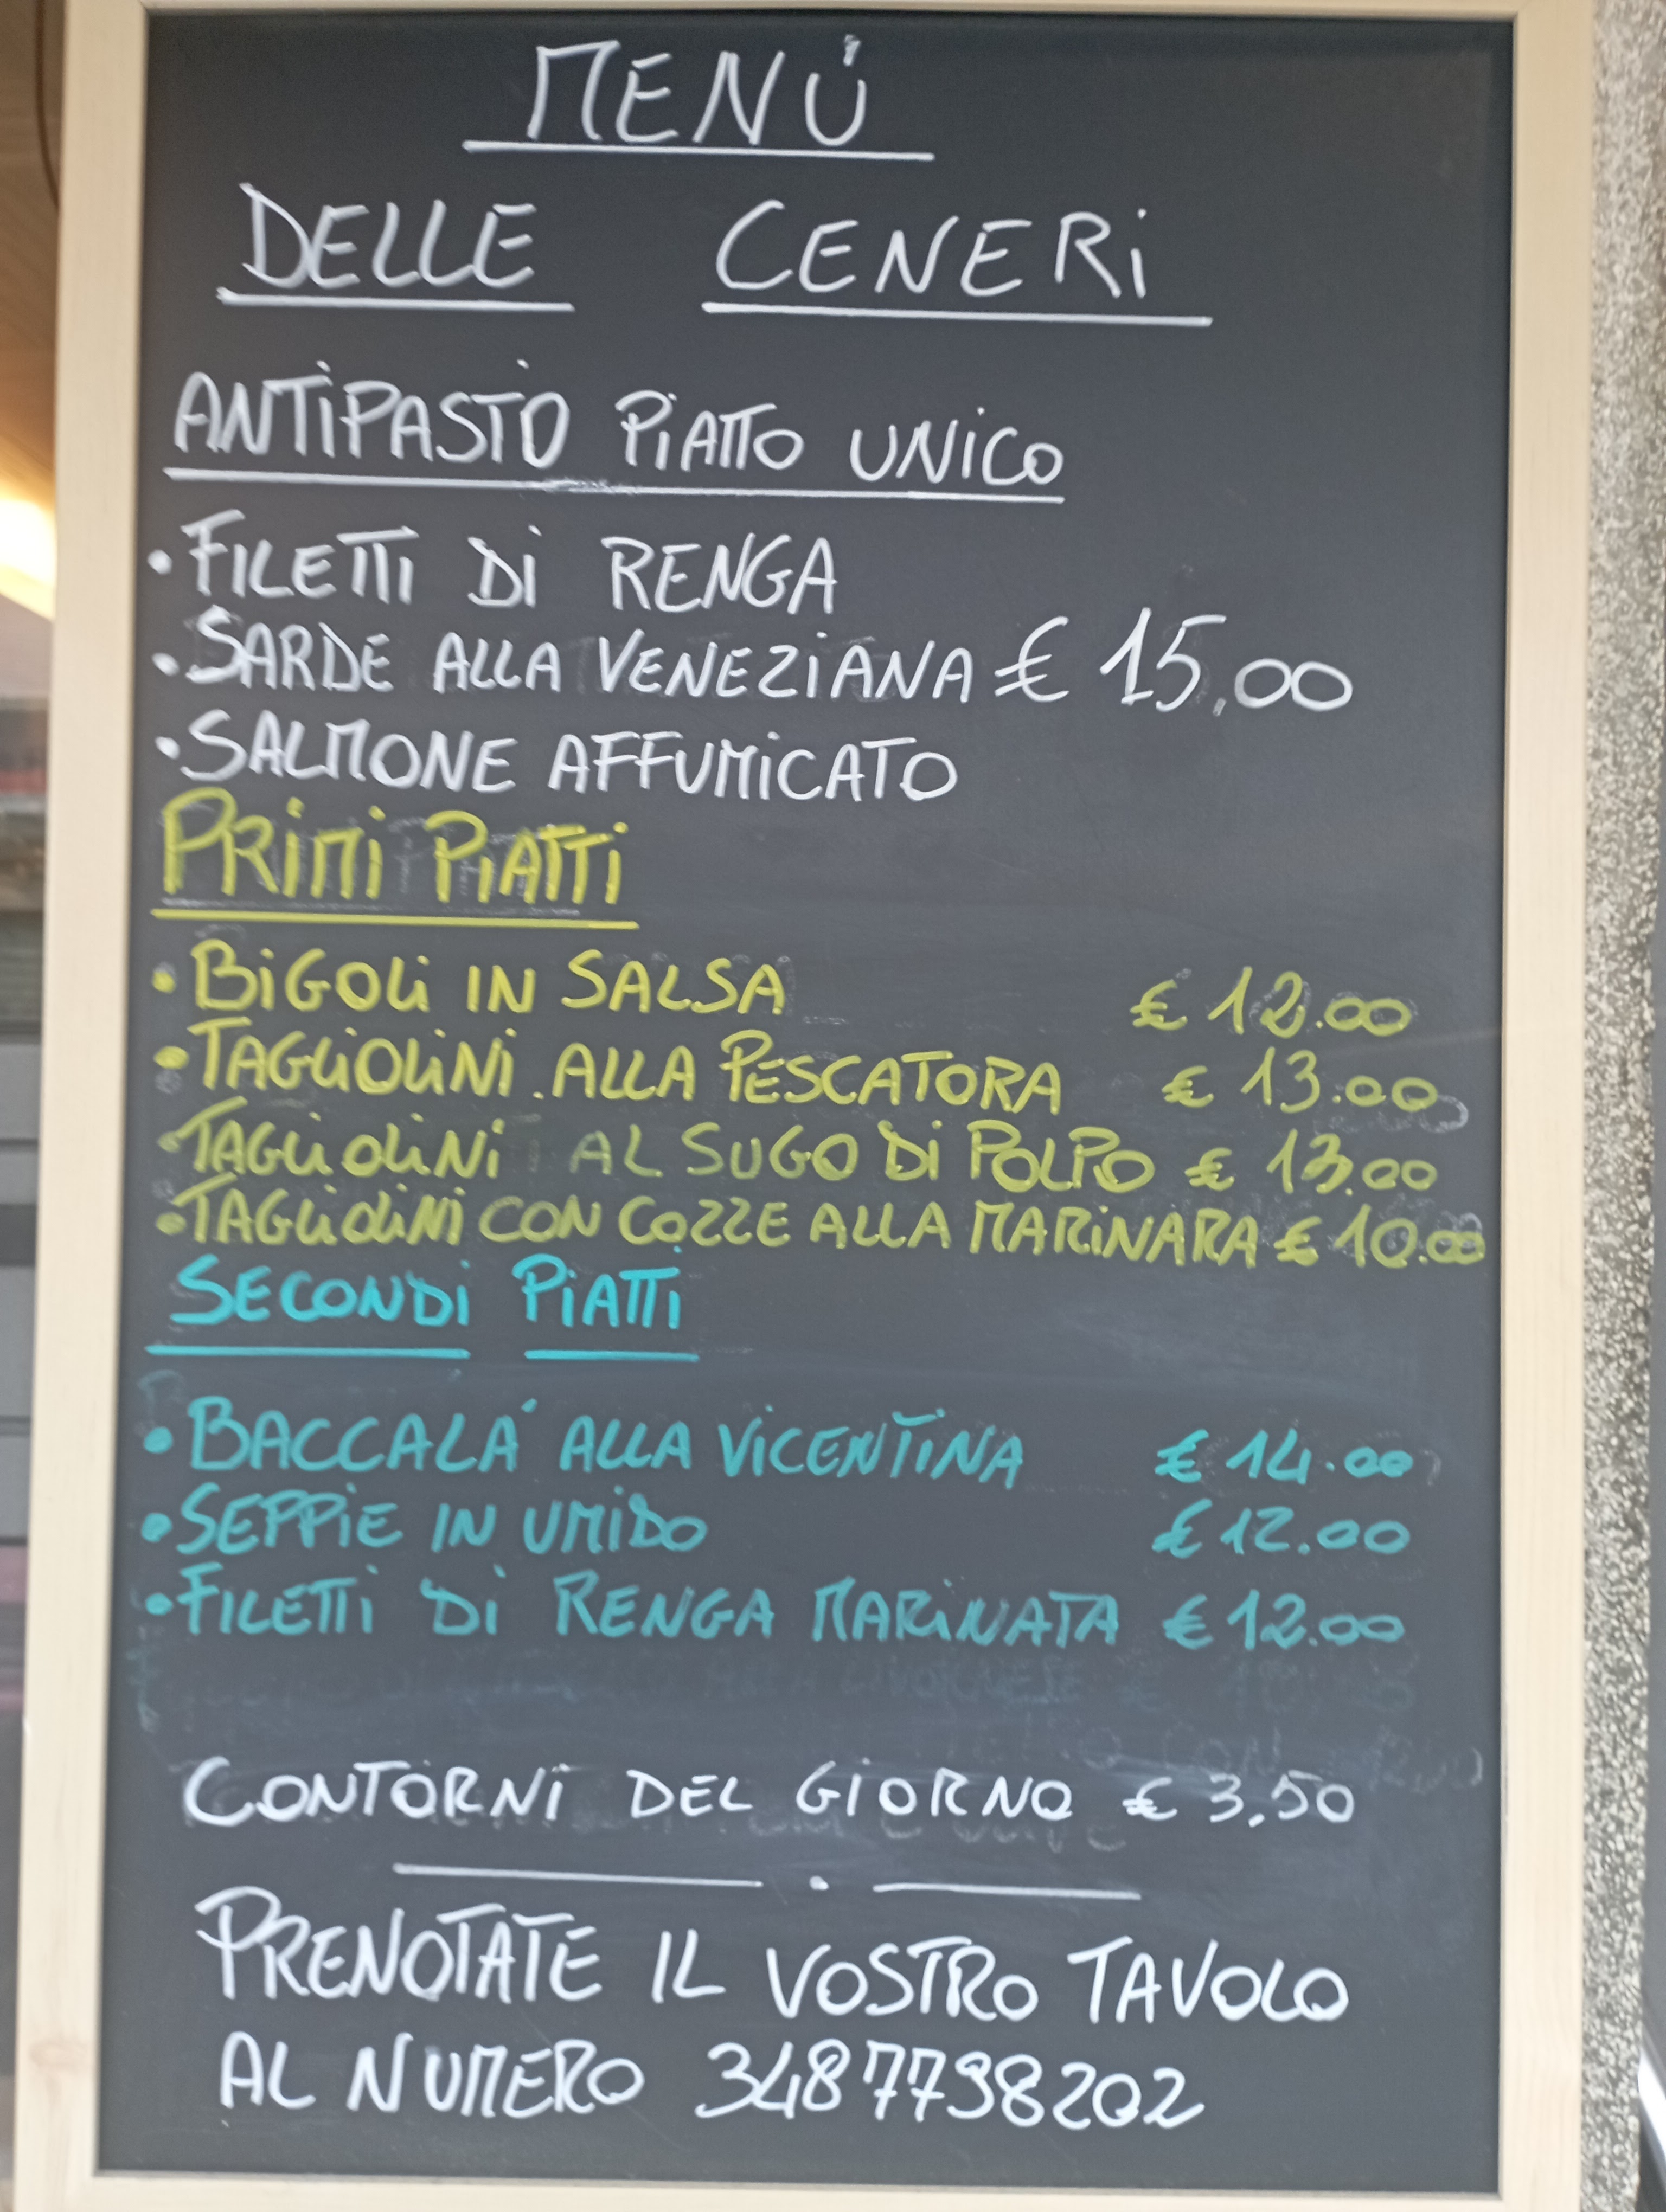 MENÚ
DELLE CENERI
ANTIPASTO PIATTO UNICO
• FILETTI DI RENGA
• SARDE ALLA VENEZIANA € 15,00
• SALMONE AFFUMICATO
PRIMI PIATTI
• BIGOLI IN SALSA € 12.00
• TAGLIOLINI ALLA PESCATORA € 13.00
• TAGLIOLINI AL SUGO DI POLPO € 13.00
• TAGLIOLINI CON COZZE ALLA MARINARA € 10.00
SECONDI PIATTI
• BACCALÁ ALLA VICENTINA € 14.00
• SEPPIE IN UMIDO € 12.00
• FILETTI DI RENGA MARINATA € 12.00
CONTORNI DEL GIORNO € 3,50
PRENOTATE IL VOSTRO TAVOLO
AL NUMERO 3487798202